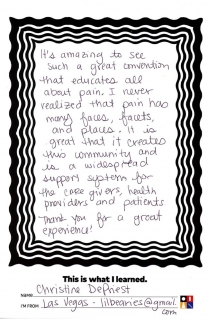 It's amazing to see
such a great convention
that educates all
about pain. I never
realized that pain has
many faces, facets,
and places. It is
great that it creates
this community and
is a widespread
support system for
the care givers, health
providers and patients
Thank you for a great
experience!
This is what I learned.
NAME Christine DePriest
I'M FROM Las Vegas - lilbearies@gmail.
com